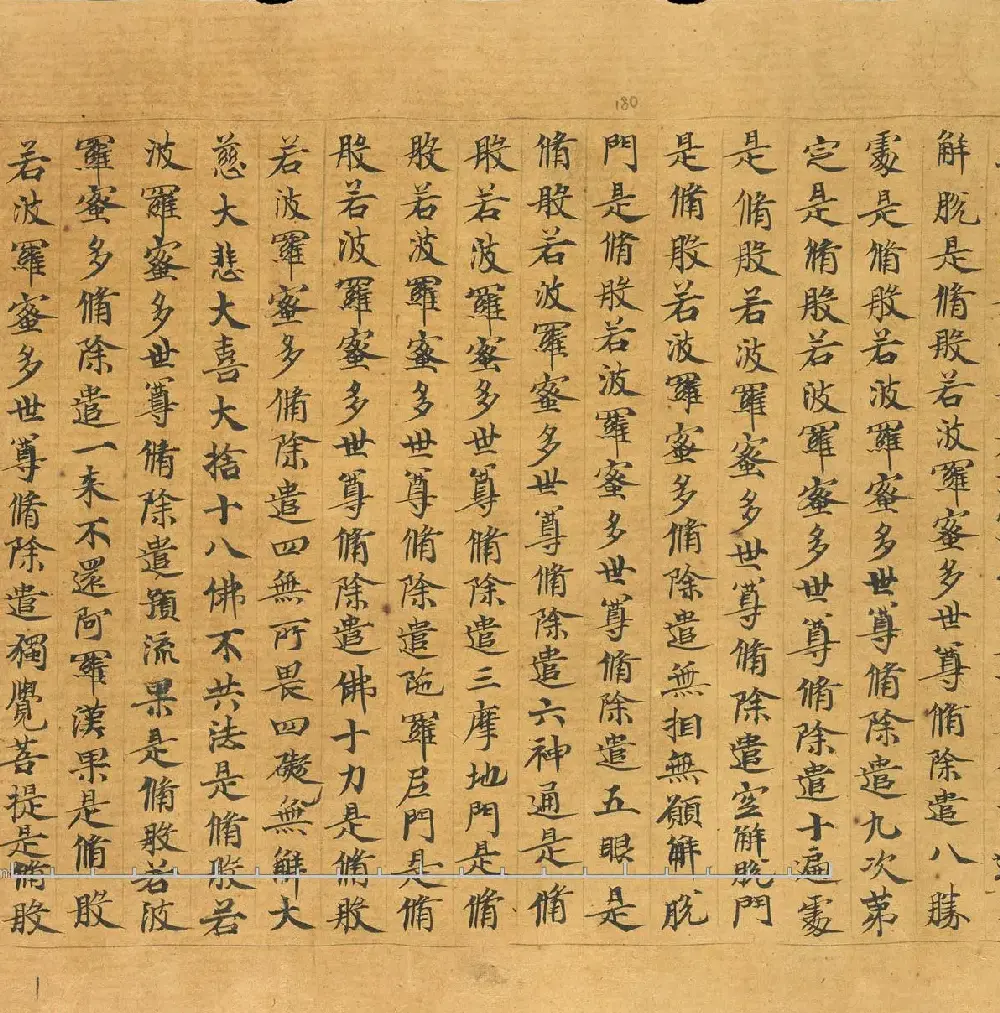 180
解脫是脩般若波羅蜜多世尊脩除遣八勝
處是脩般若波羅蜜多世尊脩除遣九次第
定是脩般若波羅蜜多世尊脩除遣十遍處
是脩般若波羅蜜多世尊脩除遣空解脫門
是脩般若波羅蜜多脩除遣無相無願解脫
門是脩般若波羅蜜多世尊脩除遣五眼是
脩般若波羅蜜多世尊脩除遣六神通是脩
般若波羅蜜多世尊脩除遣三摩地門是脩
般若波羅蜜多世尊脩除遣陁羅尼門是脩
般若波羅蜜多世尊脩除遣佛十力是脩般
若波羅蜜多脩除遣四無所畏四礙無解大
慈大悲大喜大捨十八佛不共法是脩般若
波羅蜜多世尊脩除遣預流果是脩般若波
羅蜜多脩除遣一来不還阿羅漢果是脩般
若波羅蜜多世尊脩除遣獨覺菩提是脩般